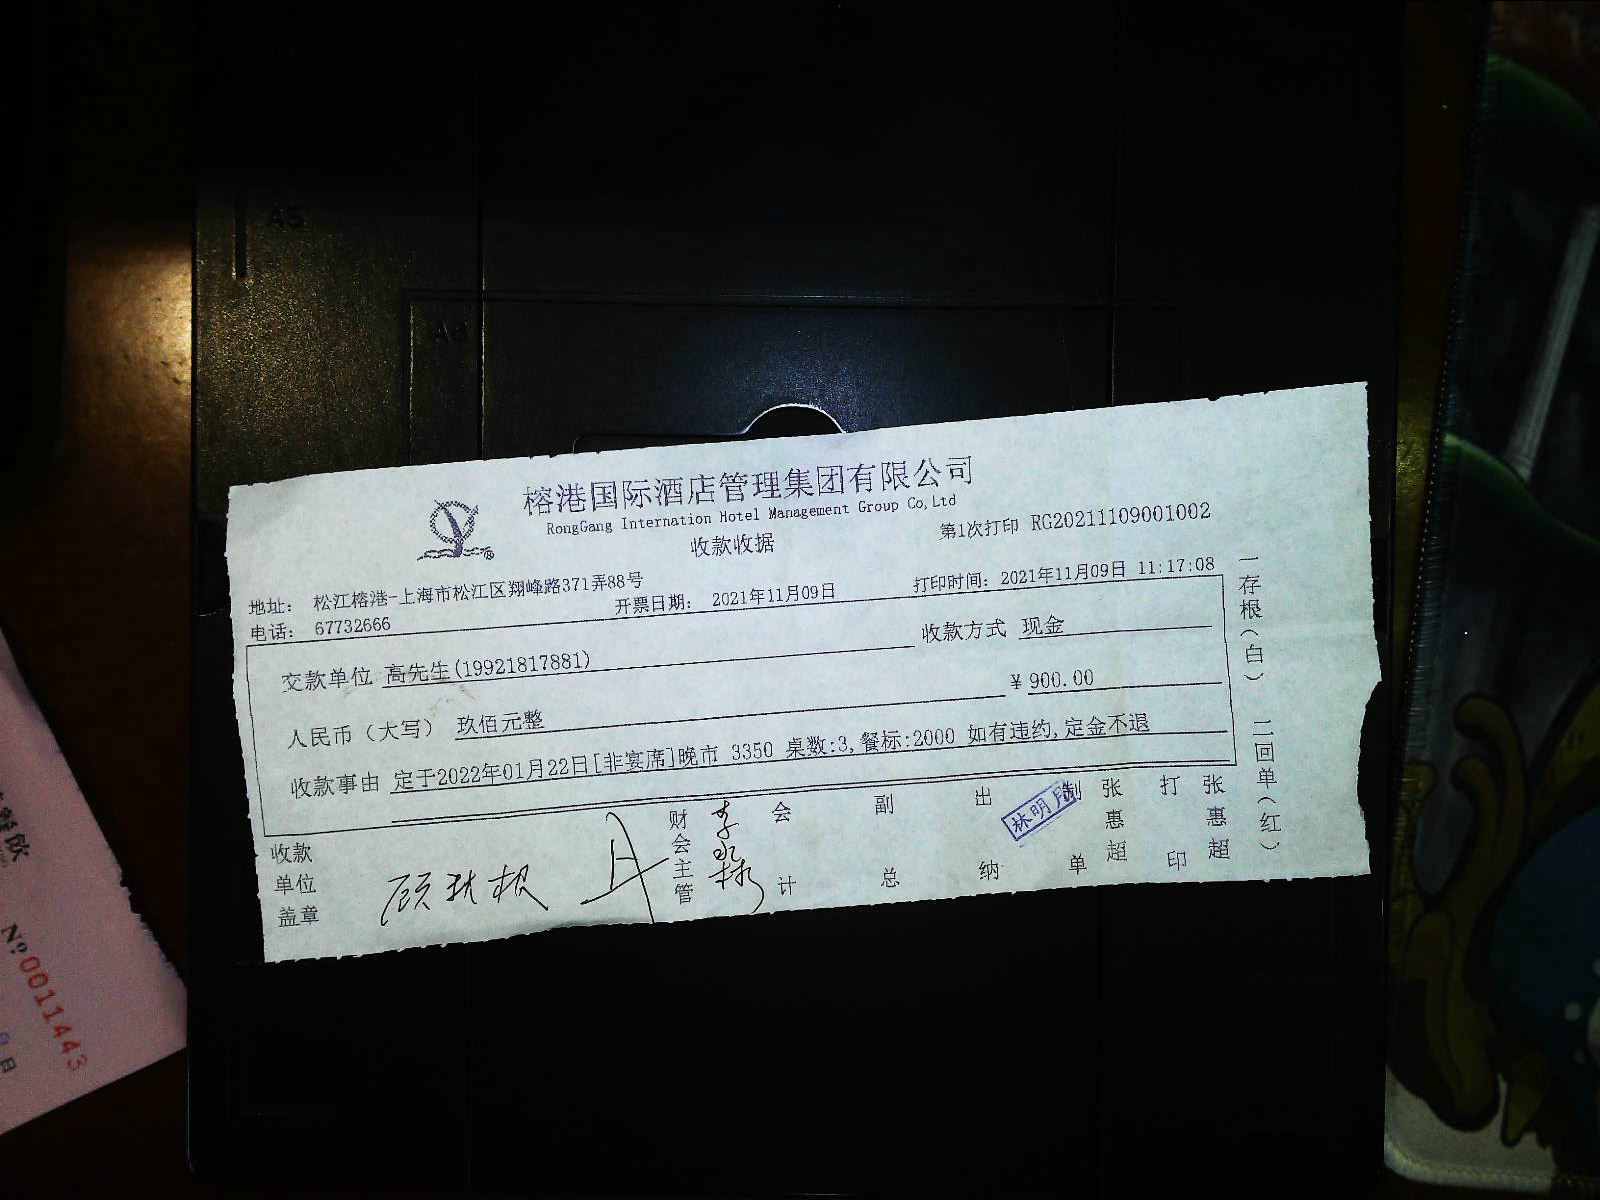 A5
A6
榕港国际酒店管理集团有限公司
RongGang Internation Hotel Management Group Co,Ltd
收款收据
第1次打印 RG20211109001002
地址： 松江榕港-上海市松江区翔峰路371弄88号
电话： 67732666
开票日期： 2021年11月09日
打印时间：2021年11月09日 11:17:08
交款单位 高先生(19921817881)
收款方式 现金
人民币（大写） 玖佰元整
￥900.00
收款事由 定于2022年01月22日[非宴席]晚市 3350 桌数:3,餐标:2000 如有违约,定金不退
收款单位盖章
财会主管
会计
副总
出纳
林明月
制单
张惠超
打印
张惠超
一存根（白） 二回单（红）
№0011443
日